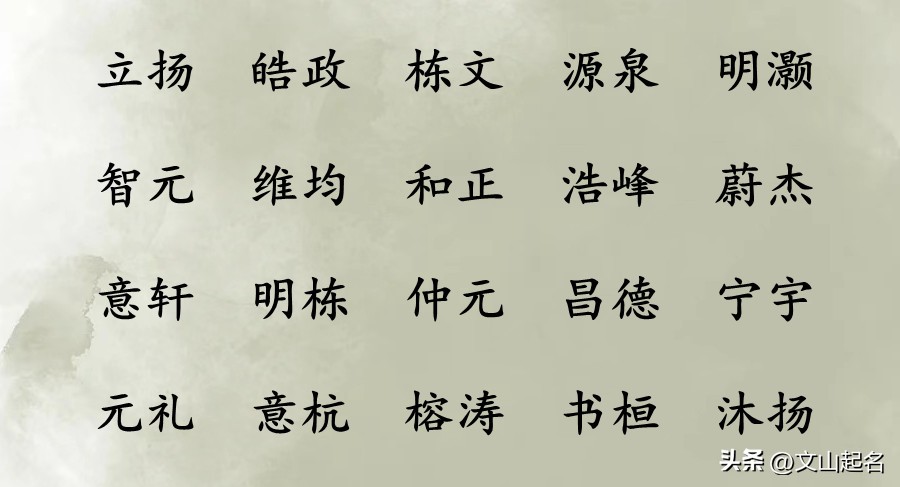 立扬 皓政 栋文 源泉 明灏
智元 维均 和正 浩峰 蔚杰
意轩 明栋 仲元 昌德 宁宇
元礼 意杭 榕涛 书桓 沐扬
头条 @文山起名